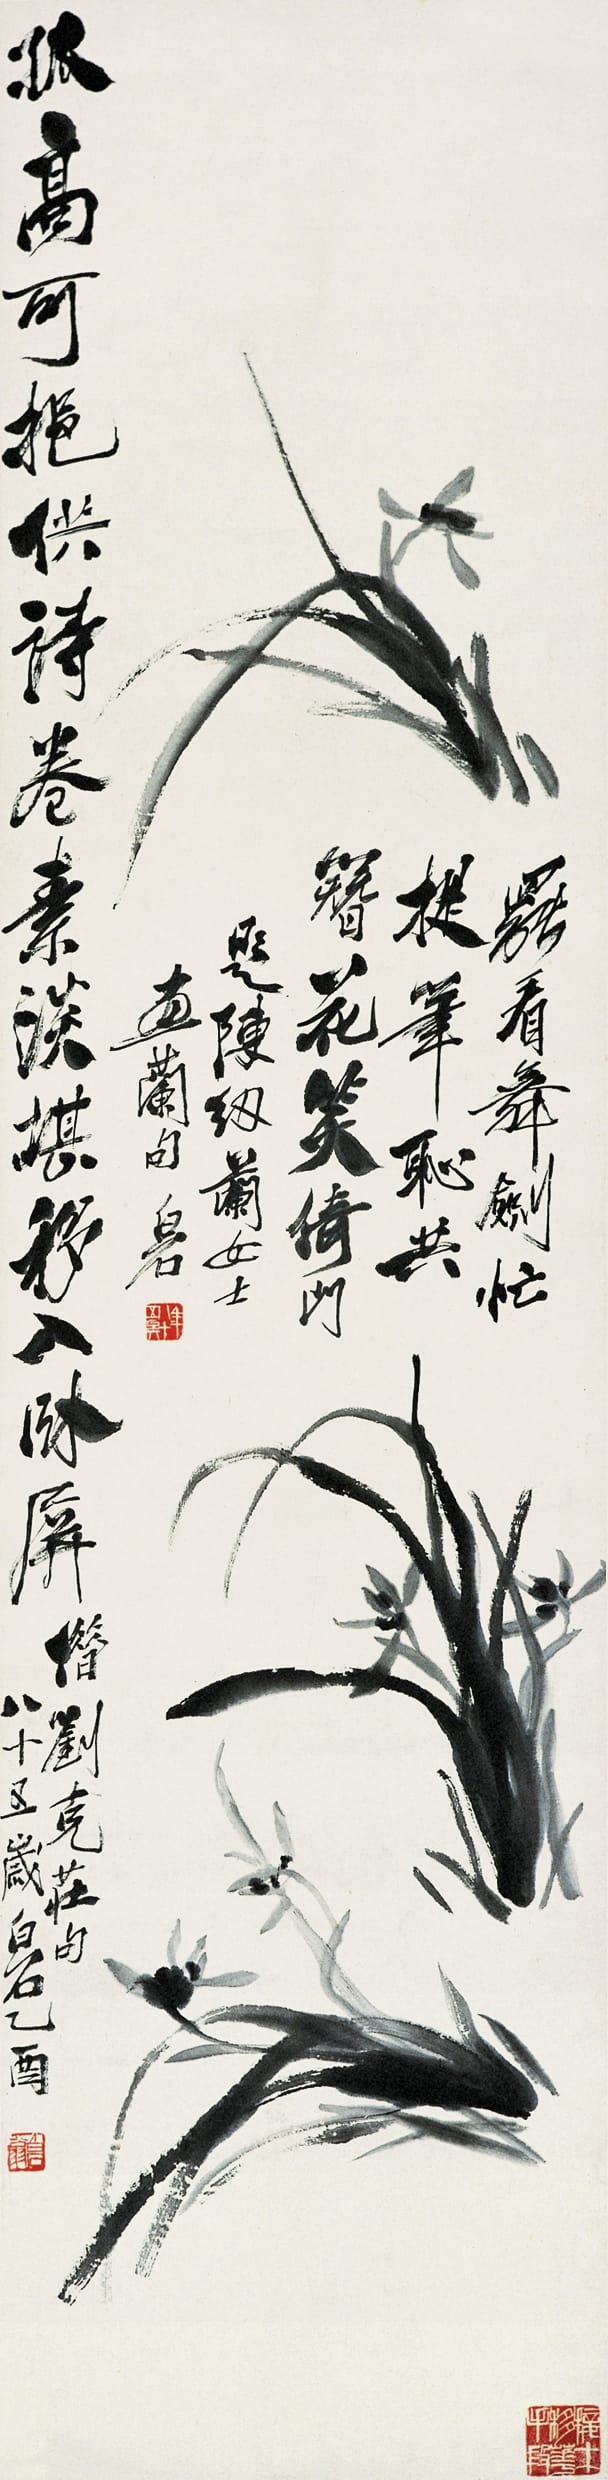 罷看舞劍忙
提筆恥共
簪花笑倚門
題陳紉蘭女士
畫蘭句 白石
孤高可挹供詩卷素淡堪移入臥屏
借劉克莊句
八十五歲白石乙酉
接木移花手段